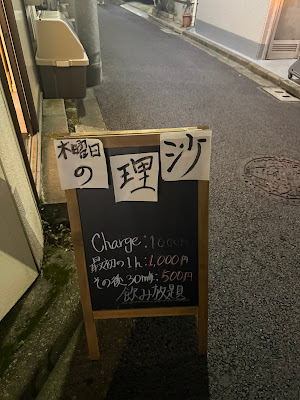 木曜日の理沙
Charge: 1000円
最初の1h:1,000円
その後30min:500円
飲み放題